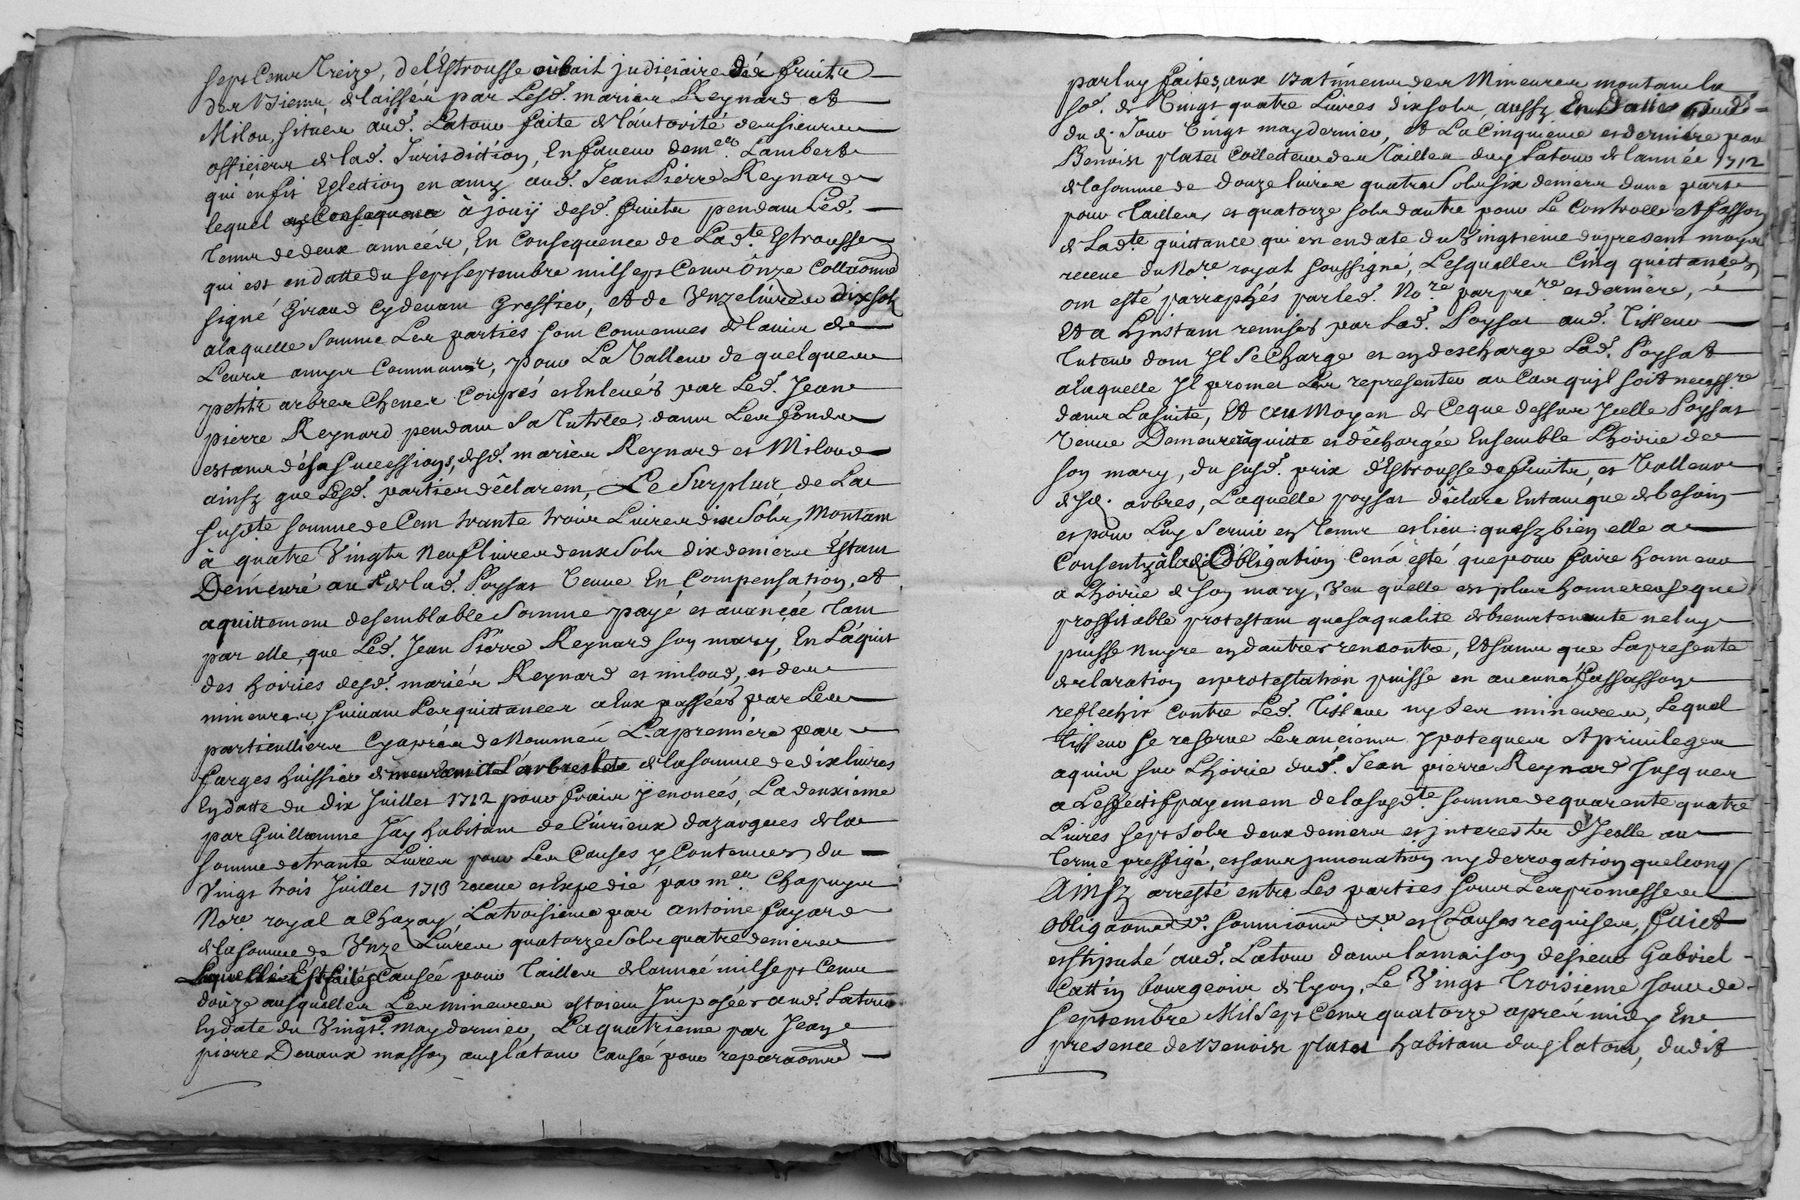 sept Cens Treize, de l'Estrousse oubail judiciaire des fruits
des Biens, delaissés par Lesd. mariés Reynard et
Milou, situés aud. Latour faite de l'autorité de messieurs
officiers de lad. Jurisdiction, En faveur de me. Lambert
qui en fit Eslection en amy aud. Jean Pierre Reynard
lequel à jouÿ desd. fruits pendant Led.
Tems de deux années, En consequence de Lad.te Estrousse
qui est en datte du sept septembre mil sept Cens Onze Collaonné
signé Giraud cydevant Greffier, et de Unze livres dix sols
a laquelle somme Les parties sont convenues de l'avis de
Leurs amys Communs, pour La Valleur de quelques
petits arbres Chenes Coupés et Enlevés par Led. Jean
pierre Reynard pendant sa Tutelle, dans Les fonds
estans désd. successions, desd. mariés Reynard et Miloud
ainsy que Lesd. parties déclarent, Le Surplus de La
susd.te somme de Cent trante trois Livres dix Sols, Montant
à quatre Vingts Neuf livres deux Sols dix deniers Estant
Demeuré au de lad. Poyssat Veuve En Compensation, et
aquittement de semblable Somme payé et avancée tant
par elle, que Led. Jean Pierre Reynard son mary, En L'aquit
des hoiries desd. mariés Reynard et miloud, et des
mineurs, suivant Les quittances a Eux passées par Les
particulliers Cyaprés deNommés La première par
farges huissier de la somme de dix livres
En datte du dix Juillet 1712 pour frais y enoncés, La deuxième
par Guillaume Jay habitant de Civrieux dazargues de la
somme de trante Livres pour Les Causes y Contenues du
Vingt trois Juillet 1713 receue et Expedie par me. Chapuys
No.re royal a Chazay, La troisieme par antoine fayard
de la somme de Unze Livres quatorze Sols quatre deniers
Causée pour Tailles de l'année mil sept Cens
douze ausquelles Les mineurs estoient Imposées aud. Latour
En date du Vingt. may dernier, La quatrieme par Jean
pierre Devaux masson aud. Latour Causé pour reparaons
par luy faites aux Batimens des Mineurs montant la
so.e de Vingt quatre Livres dix sols, aussy En datte
du d. Jour Vingt may dernier, et La Cinquieme et derniére par
Benoist plater Collecteur des Tailles duy Latour de l'année 1712
de la somme de douze livres quatre Sols six deniers dune part
pour Tailles, et quatorze sols dautre pour Le Controlle et fasson
de Lad.te quittance qui est en date du Vingtieme du present mois
receue du No.re royal soussigné, Lesquelles Cinq quittances
ont esté parraphés par led. No.re par pre.re et derniére,
Et a Linstant remises par Lad. Poyssat aud. Tisseur
Tuteur dont Il Se Charge et en descharge Lad. Poyssat
a laquelle Il promet Les representer au Cas quil soit neccss.re
dans La suite, Et au Moyen de Ceque dessus Icelle Poyssat
Veuve Demeure quitte et déchargée Ensemble L'hoirie de
son mary, du susd. prix d'Estrousse de fruits, et Valleur
desd. arbres, Laquelle poyssat déclare Entant que de besoin
et pour Luy Servir en Tems et lieu: que sy bien elle a
Consenty à lad. Obligation Cen'a esté que pour faire honneur
a L'hoirie de son mary, Veu qu'elle est plus honnereuse que
proffitable protestant que sa qualité de bientenante ne luy
puisse nuyre en d'autres rencontre, Et sans que La presente
declaration et protestation puisse en aucune fassasson
reflechir Contre Led. Tisseur ny Les mineurs, Lequel
Tisseur se reserve Les anciens ypoteques et privileges
aquis sur L'hoirie dud. Jean pierre Reynard Jusques
a L'effectif payement de la susd.te somme de quarente quatre
Livres sept sols deux deniers et jnterests d'Icelle au
Terme preffigé, et sans jnnovation ny derrogation quelconq
Ainsy arresté entre Les parties sous Les promesses
obligaons soumissions et Clauses requises, fait et
et stipulé aud. Latour dans la maison de sieur Gabriel
Cattin bourgeois de lyon, Le Vingt Troisieme Jour de
Septembre Mil Sept Cens quatorze aprés midy En
presence de Benoist plater habitant dud. latour, dudit